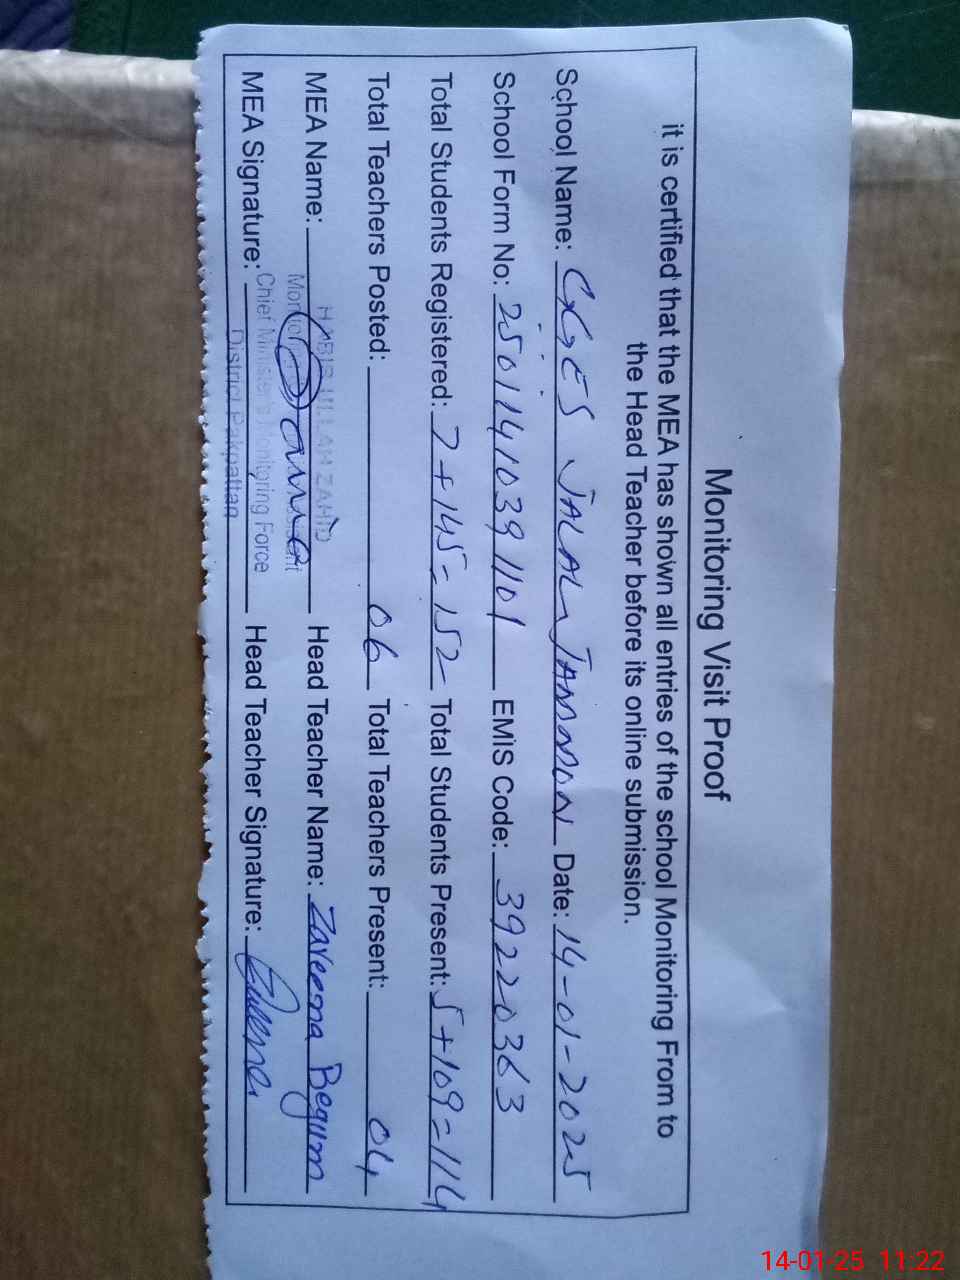 Monitoring Visit Proof
it is certified that the MEA has shown all entries of the school Monitoring From to
the Head Teacher before its online submission.
School Name: GGES JALAL JAMMON Date: 14-01-2025
School Form No: 25011410391101 EMIS Code: 39220363
Total Students Registered: 7+145=152 Total Students Present: 5+109=114
Total Teachers Posted: 06 Total Teachers Present: 04
HABIB ULLAH ZAHID
MEA Name: Head Teacher Name: Zareena Begum
Chief Minister's Monitoring Force
MEA Signature: Head Teacher Signature:
District Pakpattan
14-01-25 11:22